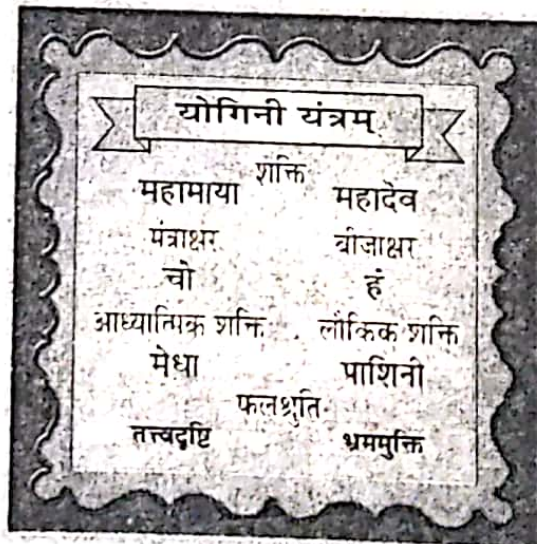 योगिनी यंत्रम्
शक्ति
महामाया महादेव
मंत्राक्षर बीजाक्षर
चो हं
आध्यात्मिक शक्ति लौकिक शक्ति
मेधा पाशिनी
फलश्रुति
तत्त्वदृष्टि भ्रममुक्ति